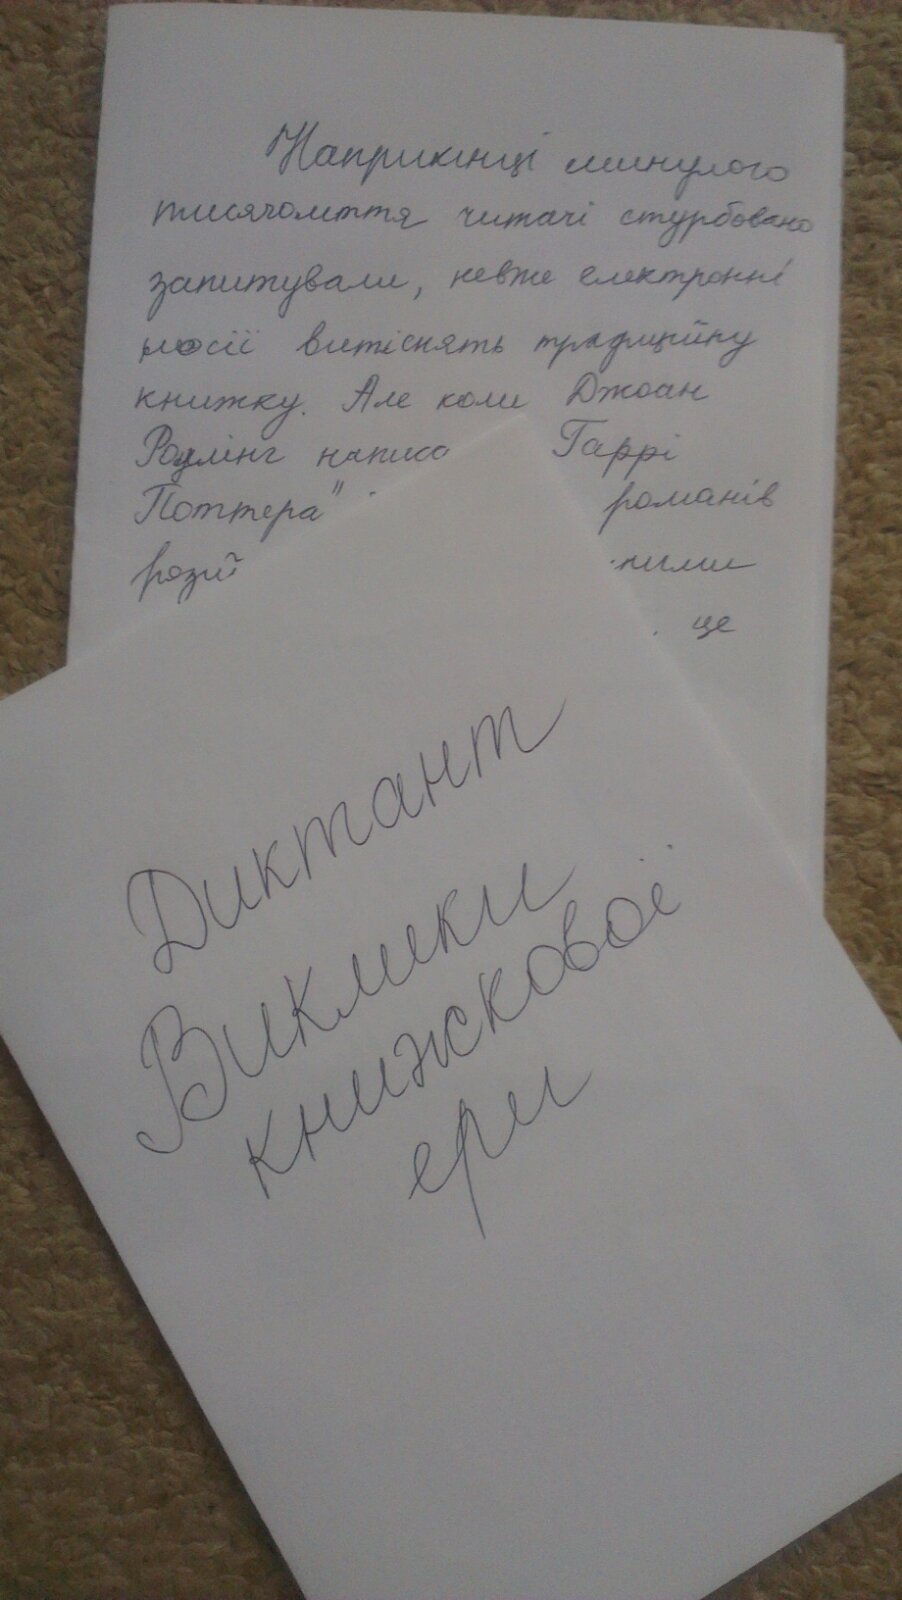 Наприкінці минулого
тисячоліття читачі стурбовано
запитували, невже електронні
носії витіснять традиційну
книжку. Але коли Джоан
Роулінг Гаррі
Поттера" романів
це
Диктант
Виклики
книжкової
ери